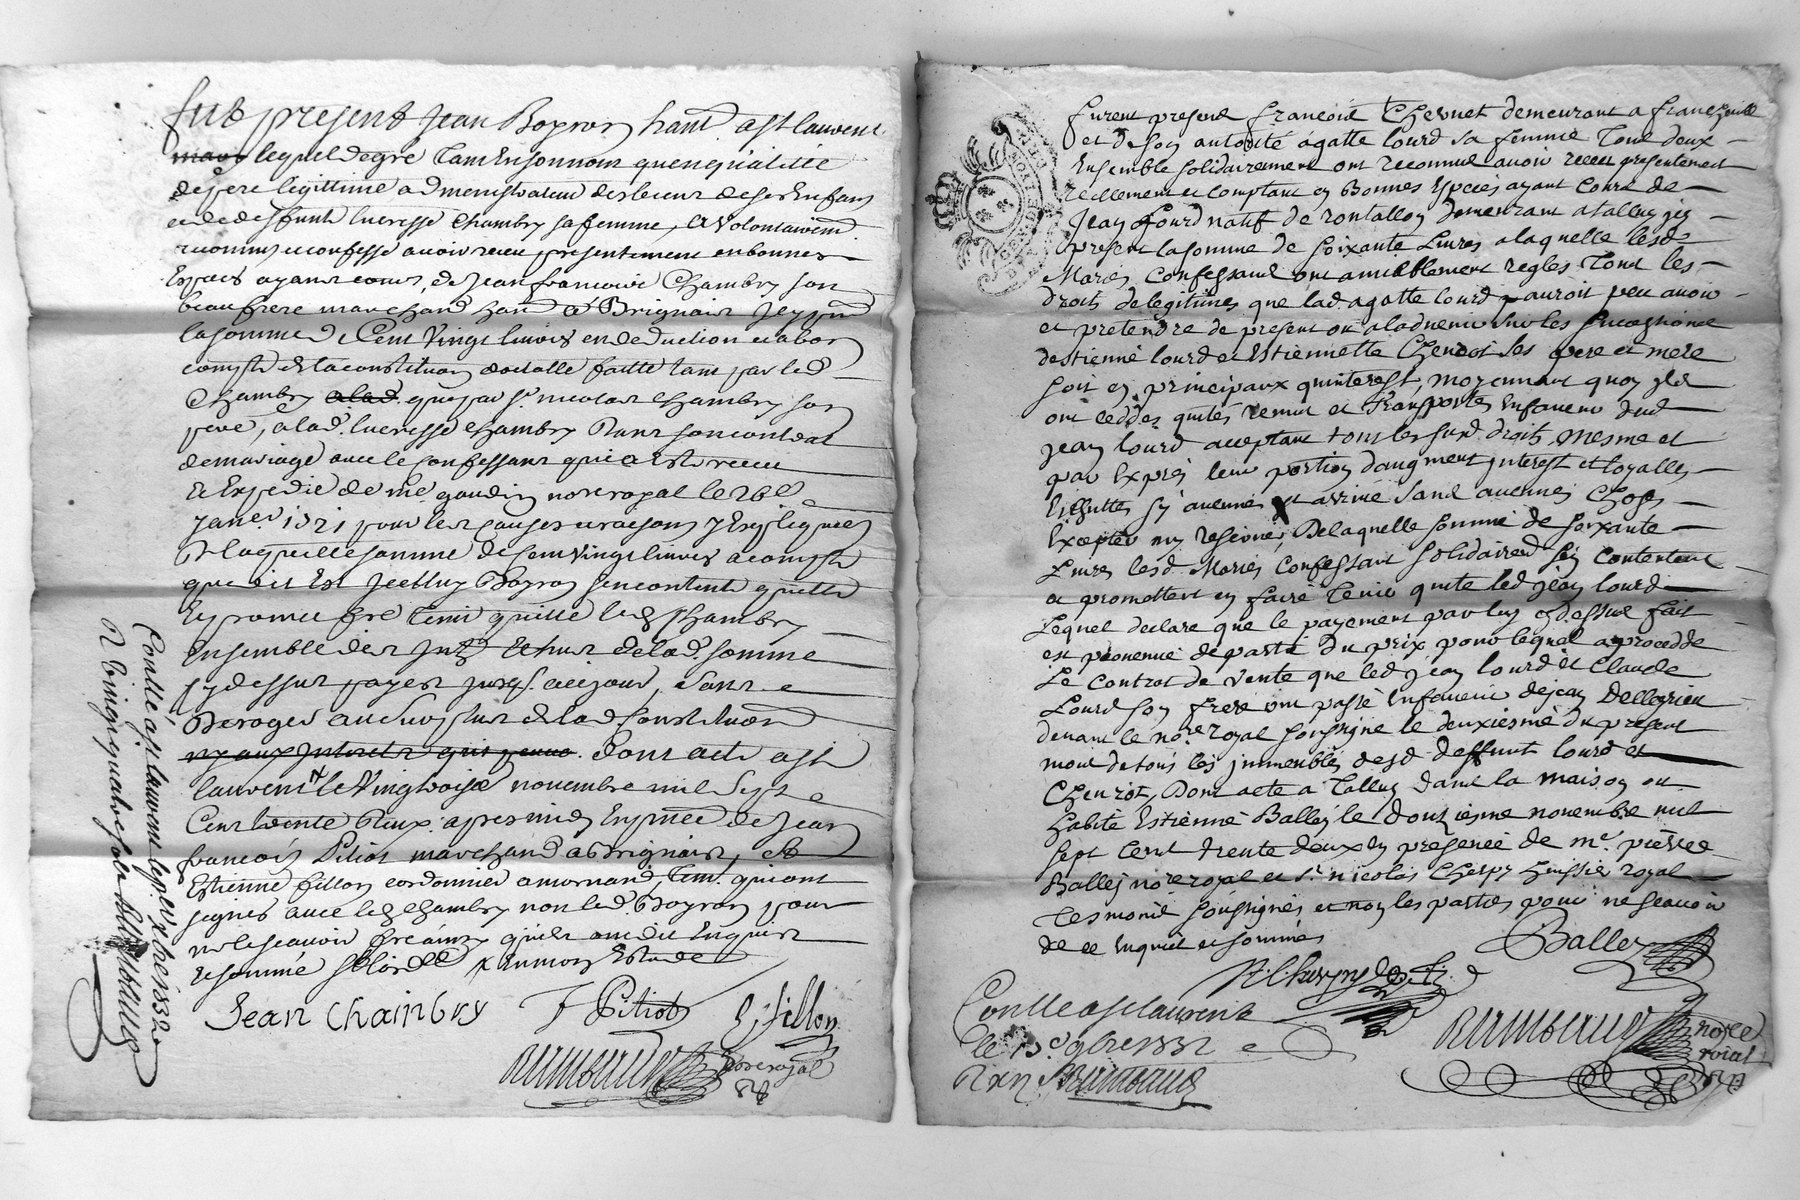 fut present Jean Boyron hant. a St laurent
lequel de gré tant en son nom qu'en qualitée
de pere legittime administrateur des biens de ses Enfans
et de deffunte lucresse Chambry sa femme, a volontairemt.
reconnu et confessé avoir receu presentement en bonnes
Especes ayant cours, de Jean francois Chambry son
beaufrere marchand hant. a Brignais Icy pnt.
la somme de Cent Vingt livres en deduction et a bon
compte de la constitution dotalle faitte tant par led.
Chambry que par sr. nicolas chambry son
pere, a lad. lucresse chambry dans son contrat
de mariage avec le confessant qui a esté receu
et Expedié de me gaudin nore royal le
janer. 1721 pour les causes et raisons y Expliquées
de laquelle somme de cent vingt livres a compte
que dit Est Icelluy Boyron se contente quitte
et promet fre tenir quitte led. Chambry
Ensemble des Intz. Echus de lad. somme
cy dessus payes jusq. a ce jour, sans
Deroger au surplus de lad. Constitution
ny aux Interets dont acte a St
laurent le Vingtroise novembre mil sept
Cent trente deux apres midy En pnce de Jean
francois Pitiot marchand a Brignais, et
Estienne fillon cordonnier a mornand, tem. qui ont
signés avec led. Chambry non led. Boyron pour
ne le scavoir fre ainsy qu'il a dit Enquis
et sommé
Jean Chambry F Pitiot E, fillon
nore royal
Conllé a St laurent
Furent present Francois Chevnet demeurant a Francheville
et de son autorité agatte lourd sa femme Tout deux
Ensemble solidairement ont reconnue avoir receu presentement
reellement et comptant en Bonnes Especes ayant Cours de
Jean Lourd natif de rontallon demeurant a talluy icy
present la somme de soixante Livres a laquelle lesd.
Mariés Confessant ont amiablement reglés Tout les
droits de legitimes que lad. agatte lourd auroit peu avoir
et pretendre de present ou a ladvenir sur les successions
destienne lourd et Estiennette Chenzot ses pere et mere
soit en principaux qu'interest, moyennant quoy ils
ont ceddez quités remis et Transportés En faveur dud.
jean lourd acceptant tous les susd. droits, mesme et
par Exprés leur portion d'augment interest et loyalles
Eschuttes sy aucunne est arrivé sans aucunnes Choses
Excepter ny reserver, De laquelle somme de soixante
Livres lesd. Mariés Confessant solidairemt. se Contentent
et promettent en faire Tenir quite led. jean lourd
Lequel declare que le payement par luy cy dessus fait
est provenue de partie Du prix pour lequel a procedde
Le Contrat de vente que led. jean lourd et Claude
Lourd son frere ont passé En faveur de jean Dellorieu
devant le nore. royal soussigné le deuxiesme du present
mois de tous les immeubles desd. deffunt lourd et
Chenzot, Dont acte a Talluy dans la maison ou
habite Estienne Balley le douziesme novembre mil
sept Cent trente deux en presence de me. pierre
Balley nore royal et sr. nicolas Cherpy huissier royal
Tesmoins soussignés et non les parties pour ne scavoir
de ce Enquis et sommés
Balley
Conllé a St laurent
le 13e 9bre 1732
nore
roial